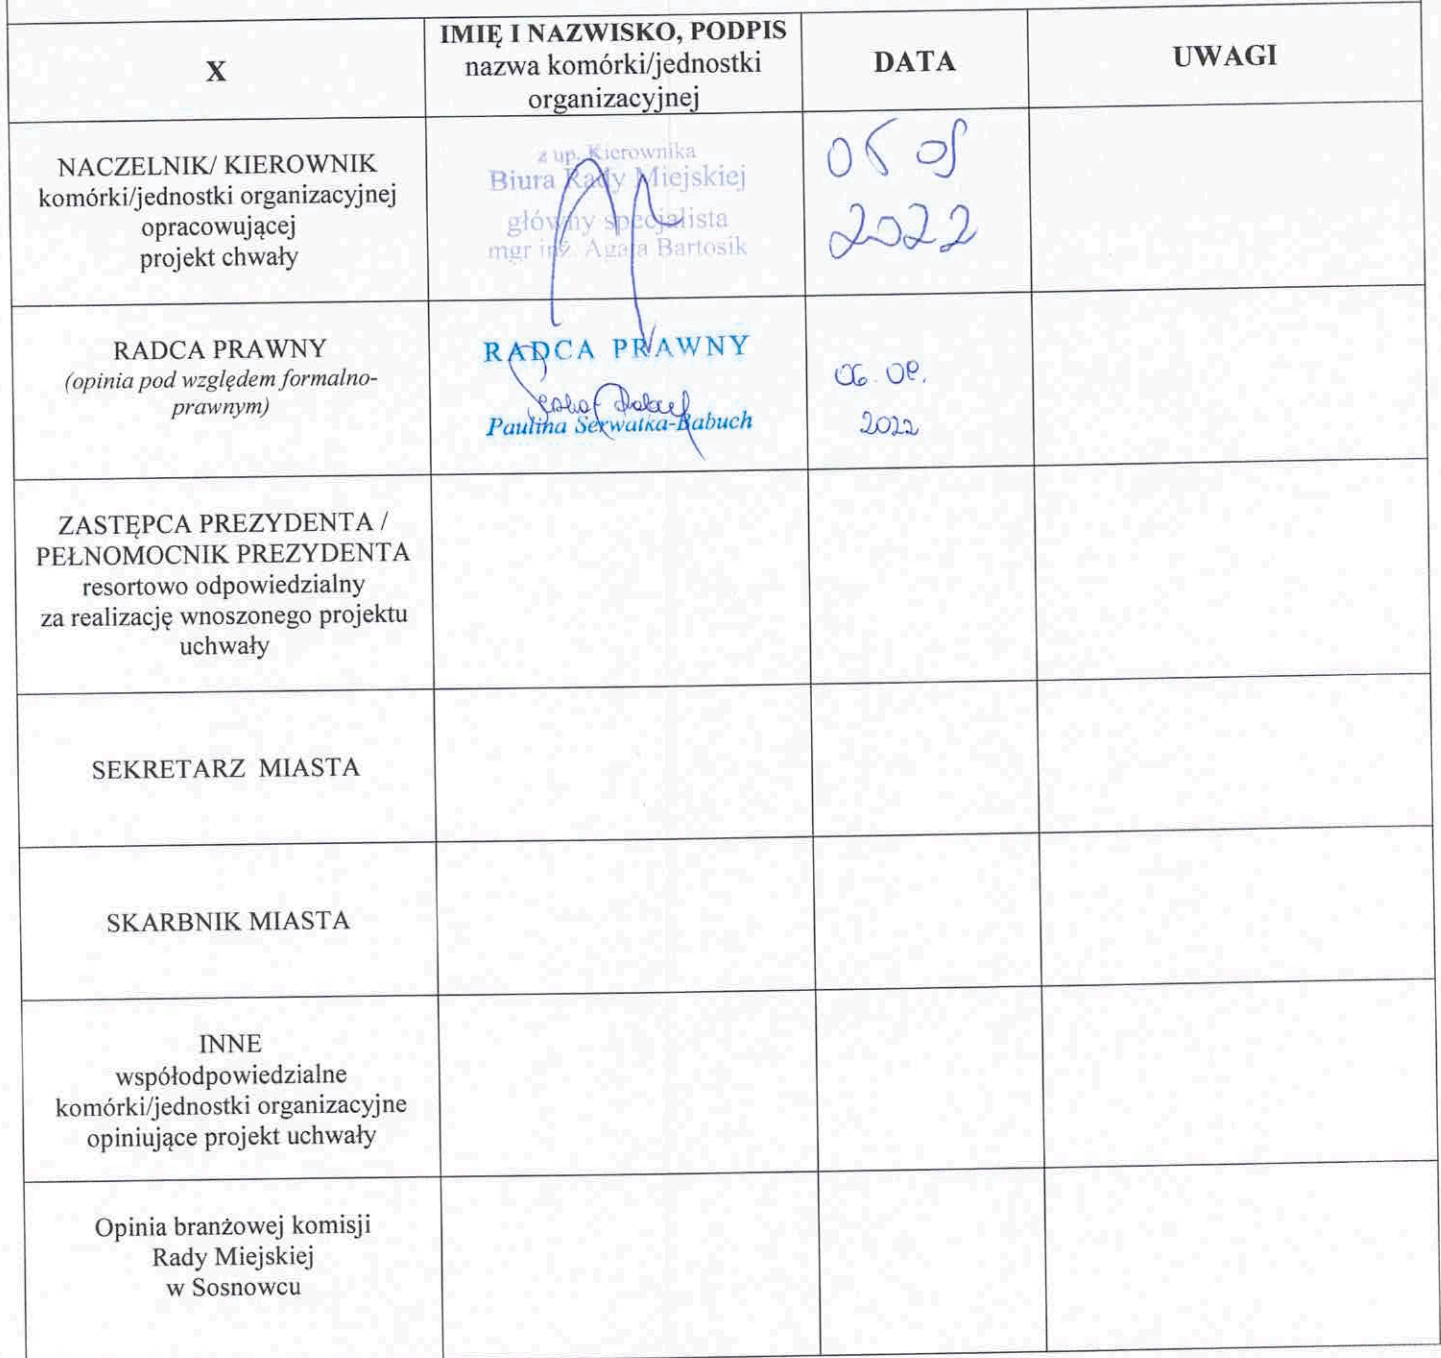 X
IMIĘ I NAZWISKO, PODPIS
nazwa komórki/jednostki
organizacyjnej
DATA
UWAGI
NACZELNIK/ KIEROWNIK
komórki/jednostki organizacyjnej
opracowującej
projekt chwały
z up. Kierownika
Biura Rady Miejskiej
główny specjalista
mgr inż. Agata Bartosik
2022
RADCA PRAWNY
(opinia pod względem formalno-
prawnym)
RADCA PRAWNY
Paulina Serwatka-Babuch
06.09.
2022
ZASTĘPCA PREZYDENTA /
PEŁNOMOCNIK PREZYDENTA
resortowo odpowiedzialny
za realizację wnoszonego projektu
uchwały
SEKRETARZ MIASTA
SKARBNIK MIASTA
INNE
współodpowiedzialne
komórki/jednostki organizacyjne
opiniujące projekt uchwały
Opinia branżowej komisji
Rady Miejskiej
w Sosnowcu